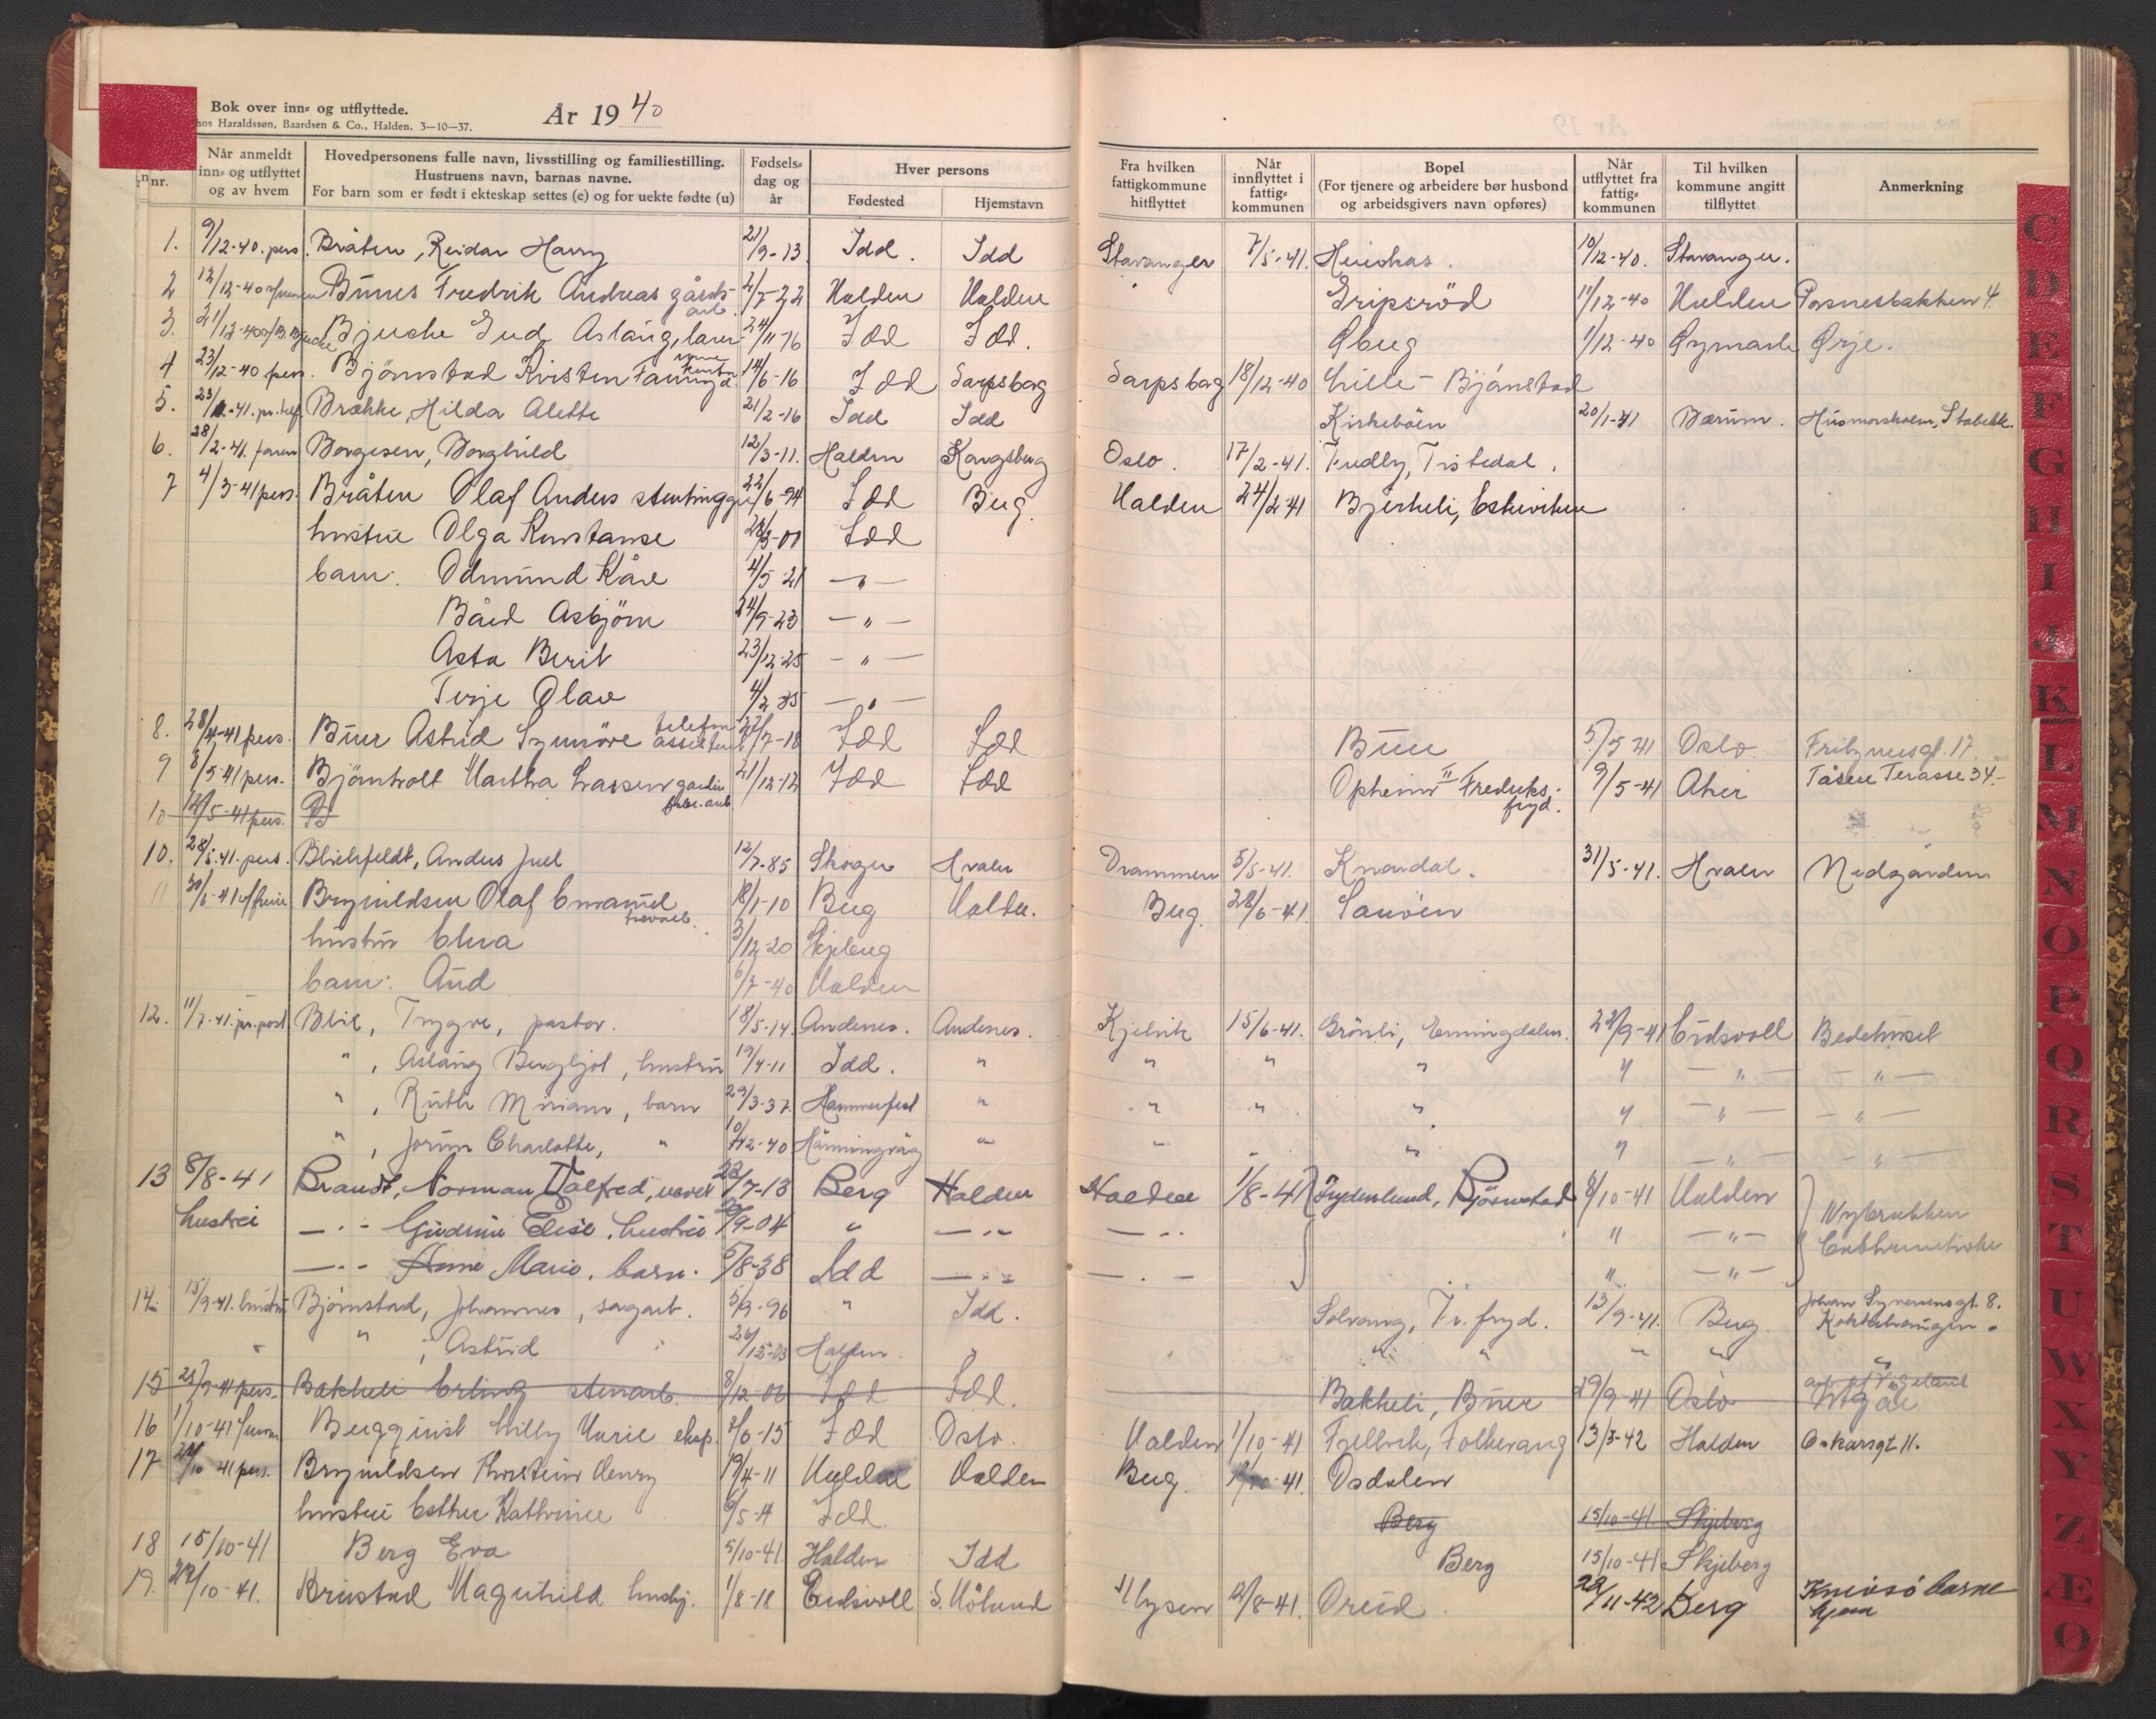 Bok over inn- og utflyttede. År 1940
hos Haraldssøn, Baardsen & Co., Halden. 3—10—37.
nr. Når anmeldt inn- og utflyttet og av hvem Hovedpersonens fulle navn, livsstilling og familiestilling. Hustruens navn, barnas navne. For barn som er født i ekteskap settes (e) og for uekte fødte (u) Fødsels- dag og år Hver persons Fødested Hjemstavn Fra hvilken fattigkommune hitflyttet Når innflyttet i fattig- kommunen Bopel (For tjenere og arbeidere bør husbond og arbeidsgivers navn opføres) Når utflyttet fra fattig- kommunen Til hvilken kommune angitt tilflyttet Anmerkning
1. 9/12-40. pers. Bråten, Reidar Harry 21/9-13 Idd. Idd Stavanger 7/5-41. 10/12-40. Stavanger.
2 12/12-40 Buus Fredrik Andreas gårds- arb. 2/7-22 Halden Halden Gripsrød 11/12-40 Halden Posnesbakken 4.
3. 21/12-40 Bjucke Gud Aslaug, lærer- 24/11-16 Idd Idd. Øberg 1/12-40 Øymark Ørje.
4 23/12-40 pers. Bjørnstad Kirsten 14/6-16 Idd Sarpsborg Sarpsborg 18/12-40 Lille-Bjørnstad
5. 23/1-41. pr. telf. Brække, Hilda Alette 21/2-16 Idd Idd Kirkebøen 20/1-41 Bærum. Husmorskolen, Stabekk.
6. 28/2-41. faren Borgesen, Borghild 12/3-11. Halden Kongsberg Oslo. 17/2-41. Fredly, Tistedal.
7 4/3-41 pers. Bråten Olaf Anders 22/6-94 Idd Berg. Halden 24/2-41 Bjerkeli, Eskeviken
hustru Olga Konstanse Idd
barn: Odmund Kåre 4/5-21 —"—
Bård Asbjørn 24/9-23 —"—
Asta Berit 23/12-25 —"—
Terje Olav 4/2-35 —"—
8. 28/4-41 pers. Buer Astrid Synnøve telefon assistent 22/7-18 Idd Idd Buer 5/5-41 Oslo Fritznersgt. 17.
9 8/5-41 pers. Bjørnholt Martha Larsen 21/12-12 Idd Idd Opheim II Fredriks- fryd. 9/5-41 Aker Tåsen Terasse 34.-
10 14/5-41 pers. B
10. 28/5.41. pers. Blichfeldt, Anders Juel 12/7-85 Skoger Hvaler Drammen 5/5-41. Knardal. 31/5-41. Hvaler Nedgården
11 30/6-41 Brynildsen Olaf Emanuel 18/1-10 Berg Halden. Berg. 28/6-41. Sauøen
hustru Elna 3/12-20 Skjeberg
barn: Aud 6/7-40 Halden
12. 11/7-41. pr. post Blix, Trygve, pastor. 18/5-14. Andenes. Andenes. Kjelvik 15/6-41. Grønli, Enningdalen. 22/9-41 Eidsvoll Bedehuset
" , Aslaug Bergljot, hustru 19/4-11 Idd. " " " " " —"— —"—
" , Ruth Miriam, barn 29/3-37. Hammerfest " " " " " —"— —"—
" , Jorun Charlotte, " 10/12-40 Honningvåg " " " " " —"— —"—
13 8/8-41 Brandt, Norman Dalfred, 23/7-13 Berg Halden Halden 1/8-41 Frydenlund, Bjørnstad 8/10-41 Halden
hustru —"— Gudrun Elise, hustru /9-04 " —"— —"— " —"—
—"— Anne Marie. barn. 5/8-38 Idd —"— —"— " —"—
14. 15/9-41. hustru Bjørnstad, Johannes, sagarb. 5/9-96 " Idd. Solvang, Fr. fryd. 13/9-41. Berg. Johan Svensensgt. 8.
" , Astrid 26/12-03 Halden. " " " " "
15 25/9-41 pers. Bakkeli Erling stenarb. 8/12-06 Idd Idd. Bakkeli, Buer 29/9-41 Oslo Utgår
16 1/10-41 Bergquist Willy Marie eksp. 2/6-15 Idd Oslo. Halden 1/10-41 Fjellvik, Folkevang 13/3-42 Halden Oskarsgt 11.
17 24/10 41 pers. Brynildsen Thorstein Henry 19/4-11 Halden Halden Berg. 41. Osdalen
hustru Esther Kathrine 9/5- Idd. Berg 15/10-41. Skjeberg
18 15/10-41 Berg Eva 5/10-41. Halden Idd Berg 15/10-41 Skjeberg
19. 29/10-41. Brustad Magnhild hushj. 1/8-18 Eidsvoll S. Høland Mysen /8-41. Oreid. 22/11-42 Berg Knivsø barne hjem
C
D
E
G
H
I
J
K
L
M
N
O
P
Q
R
S
T
U
W
X
Y
Z
Æ
Ø